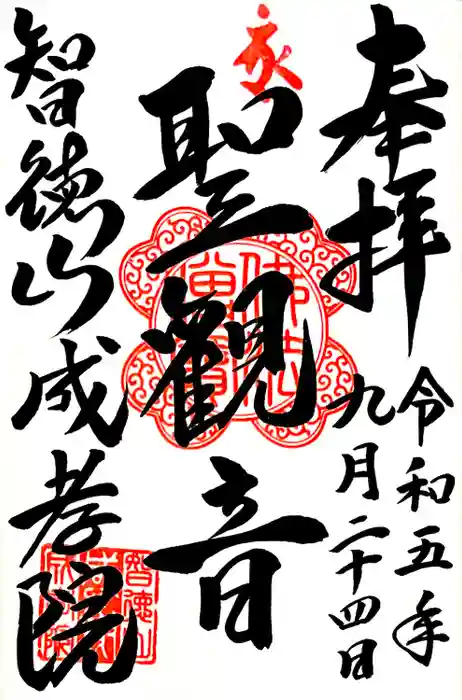 奉拝
令和五年
九月二十四日
聖観音
智徳山成孝院
佛法僧寶